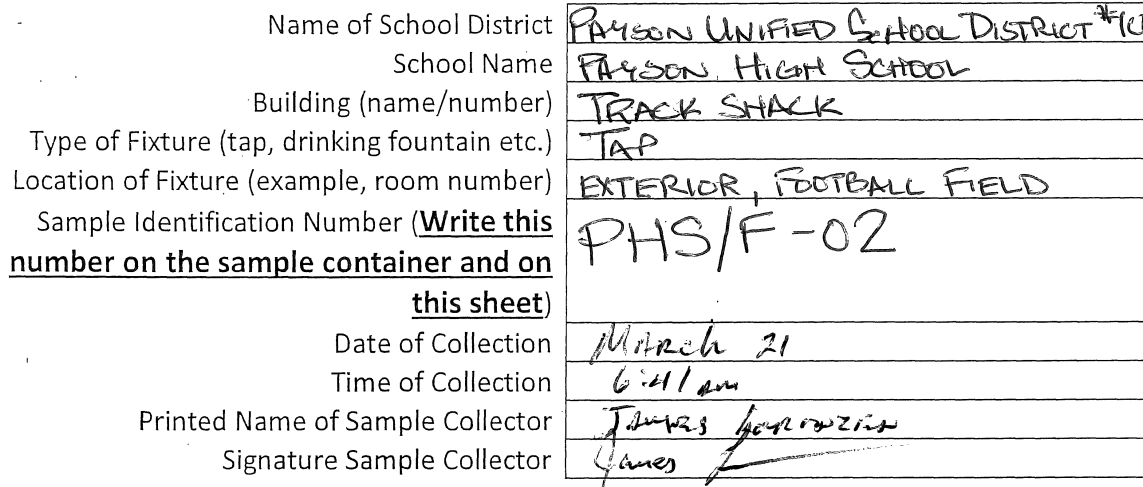 Name of School District PAYSON UNIFIED SCHOOL DISTRICT #10
School Name PAYSON HIGH SCHOOL
Building (name/number) TRACK SHACK
Type of Fixture (tap, drinking fountain etc.) TAP
Location of Fixture (example, room number) EXTERIOR, FOOTBALL FIELD
Sample Identification Number (Write this PHS/F-02
number on the sample container and on
this sheet)
Date of Collection March 21
Time of Collection 6:41 am
Printed Name of Sample Collector James
Signature Sample Collector James